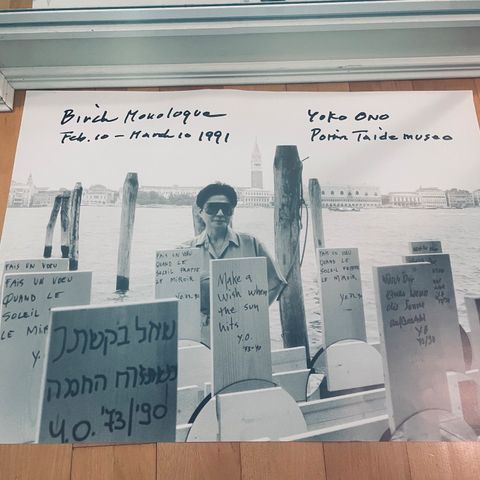 Birch Monologue
Feb. 10 – March 10 1991
YOKO ONO
Porin Taidemuseo
FAIS UN VOEU
FAIS UN VOEU
QUAND LE
SOLEIL
LE
FAIS UN VOEU
QUAND LE
SOLEIL FRAPPE
LE MIROIR
Make a
wish when
the sun
hits
Y.O.
73-90
FAIS UN VOEU
QUAND LE
SOLEIL FRAPPE
LE MIROIR
Dir
Etwas wenn
die Sonne
Y.O.
שאל בקשתך
החמה
Y.O. '73/'90